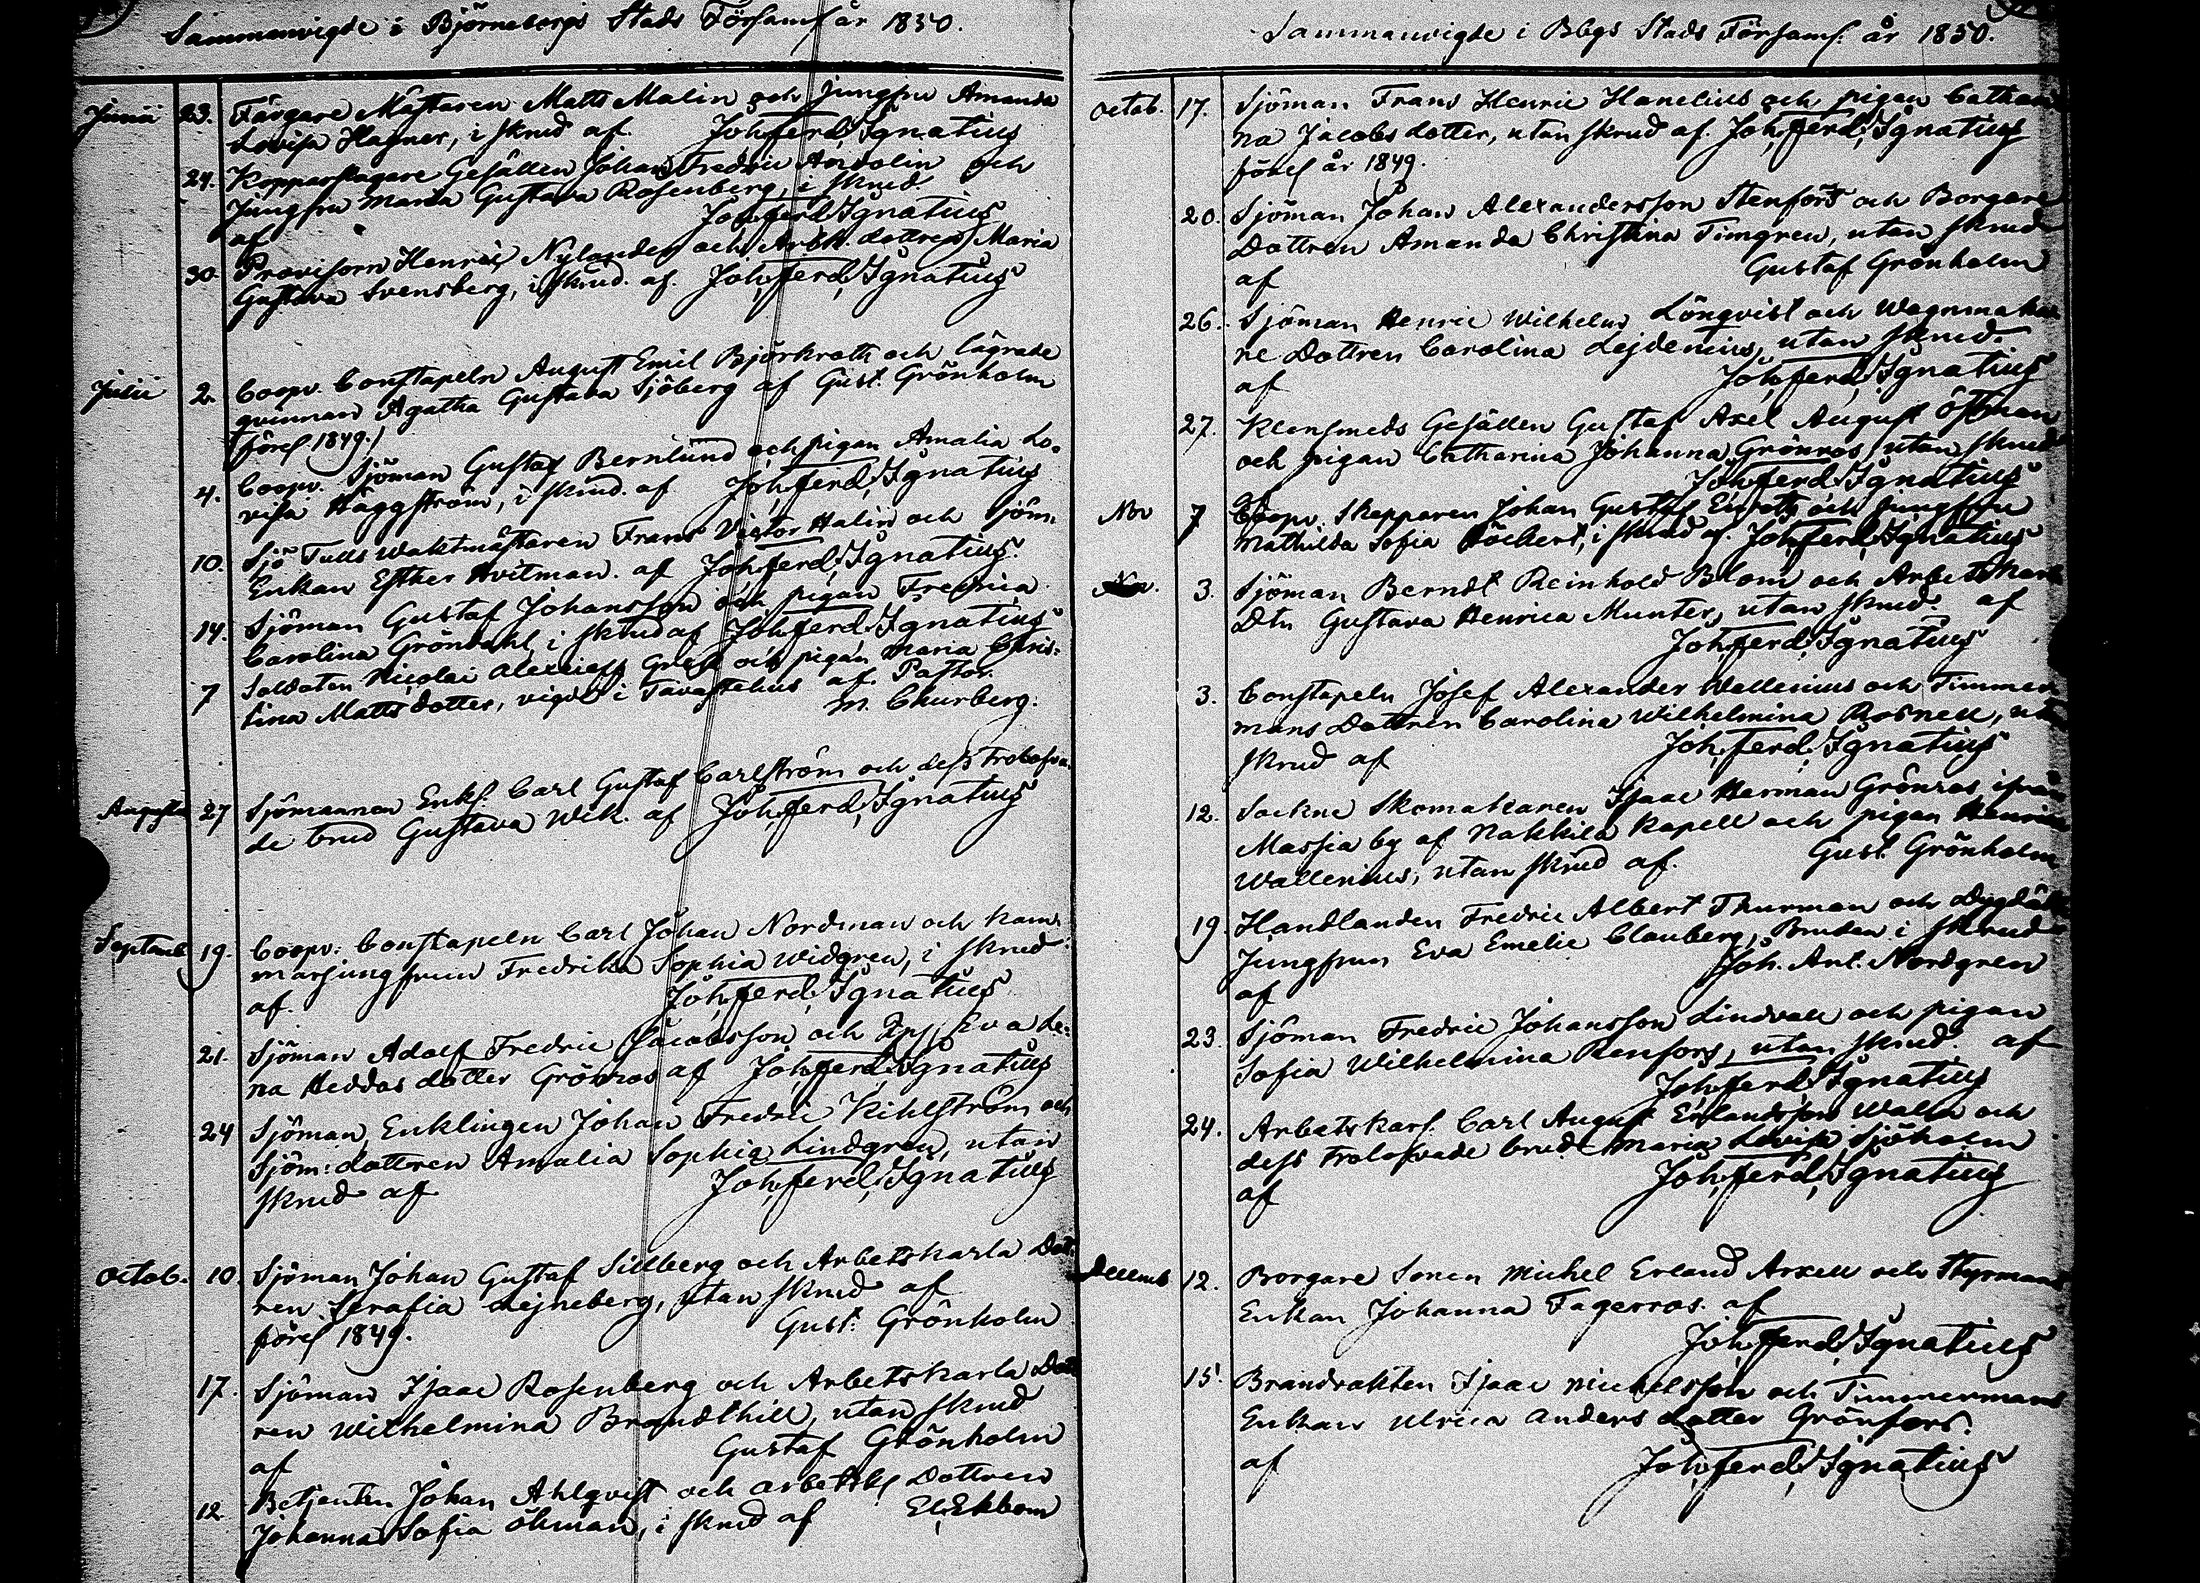 Sammanvigde i Björneborgs Stads Församl. år 1850.
Junii 23. Färgare Mästaren Matts Malin och Jungfru Amanda
Lovisa Hagner, i skrud af. Joh. Ferd. Ignatius
24. Kopparslagare Gesällen Johan Fredric Andolin och
Jungfru Maria Gustava Rosenberg, i skrud
af Joh. Ferd. Ignatius
30 Provisorn Henric Nylander och Arbk. dottren Maria
Gustava Svensberg, i skrud. af. Joh. Ferd. Ignatius
Julii 2. Coopv. Constapeln August Emil Björkroth och lägrade
qvinnan Agatha Gustava Sjöberg af Gust. Grönholm
(förel 1849.)
4. Coopv. Sjöman Gustaf Bernlund och pigan Amalia Lo-
visa Häggström, i skrud. af Joh. Ferd. Ignatius
10. Sjö Tulls Waktmästaren Frans Victor Halin och Sjöm:
Enkan Esther Hvitman. af Joh. Ferd. Ignatius.
14. Sjöman Gustaf Johansson och pigan Fredrica
Carolina Gröndahl, i skrud af Joh. Ferd. Ignatius
7 Soldaten Nicolai Alexieff och pigan Maria Chris-
tina Matts dotter, vigde i Tavastehus af. Pastor
M. Churberg.
Augusti 27 Sjömannen Enkl. Carl Gustaf Carlström och dess trolofva-
de brud Gustava Wik. af Joh. Ferd. Ignatius
Septemb 19. Coopv: Constapeln Carl Johan Nordman och Kam-
marjungfrun Fredrika Sophia Widgren, i skrud
af. Joh. Ferd. Ignatius
21. Sjöman Adolf Fredric Jacobsson och Eva Le-
na Heddas dotter Grönroos af Joh. Ferd. Ignatius
24 Sjöman, Enklingen Johan Fredric Kihlström och
Sjöm: dottren Amalia Sophia Lindgren, utan
skrud af Joh. Ferd. Ignatius
Octob. 10. Sjöman Johan Gustaf Sillberg och Arbetskarls Dott-
ren Serafia Lejneberg, utan skrud af
förel 1849. Gust. Grönholm
17. Sjöman Isaac Rosenberg och Arbetskarls Dott
ren Wilhelmina Brandthill, utan skrud
af Gustaf Grönholm
12. Betjenten Johan Ahlqvist och arbetskl Dottren
Johanna Sofia Öhman, i skrud af El. Ekbom
Sammanvigde i Bbgs Stads Församl. år 1850.
Octob. 17. Sjöman Frans Henric Hanelius och pigan Catha
na Jacobs dotter, utan skrud af. Joh. Ferd. Ignatius
förel år 1849.
20. Sjöman Johan Alexandersson Stenfors och Borgare
Dottren Amanda Christina Timgren, utan skrud
af Gustaf Grönholm
26. Sjöman Henric Wilhelm Lönqvist och Wagnmaka
re Dottren Carolina Lejdenius, utan skrud.
af Joh. Ferd. Ignatius
27. Klensmeds Gesällen Gustaf Axel August Östman
och pigan Catharina Johanna Grönroos, utan skrud
Joh. Ferd. Ignatius
Nov 7 Coopv. Skepparen Johan Gustaf Enroth och Jungfru
Mathilda Sofia Röckert, i skrud af. Joh. Ferd. Ignatius
3. Sjöman Berndt Reinhold Blom och Arbetskarls
Dtr Gustava Henrica Munter, utan skrud. af
Joh. Ferd. Ignatius
3. Constapeln Josef Alexander Wallenius och Timmer
mans Dottren Carolina Wilhelmina Rosnell, utan
skrud af Joh. Ferd. Ignatius
12. Sockne Skomakaren Isaac Herman Grönroos ifrån
Massia by af Nakkila Kapell och pigan Henrica
Wallenius, utan skrud af. Gust. Grönholm
19. Handlanden Fredric Albert Thurman och Dygdäd
Jungfrun Eva Emelie Clauberg, Bruden i skrud
af Joh. Ant. Nordgren
23. Sjöman Fredric Johansson Lindvall och pigan
Sofia Wilhelmina Renfors, utan skrud. af
Joh. Ferd. Ignatius
24. Arbetskarl. Carl August Erlandsson Walln och
dess trolofvade brud Maria Lovisa Sjöholm
af Joh. Ferd. Ignatius
Decemb 12. Borgare Sonen Michel Erland Arxell och Styrmans
Enkan Johanna Fagerroos. af
Joh. Ferd. Ignatius
15. Brandvakten Isaac Michelsson och Timmermans
Enkan Ulrica Anders dotter Grönfors.
af Joh. Ferd. Ignatius